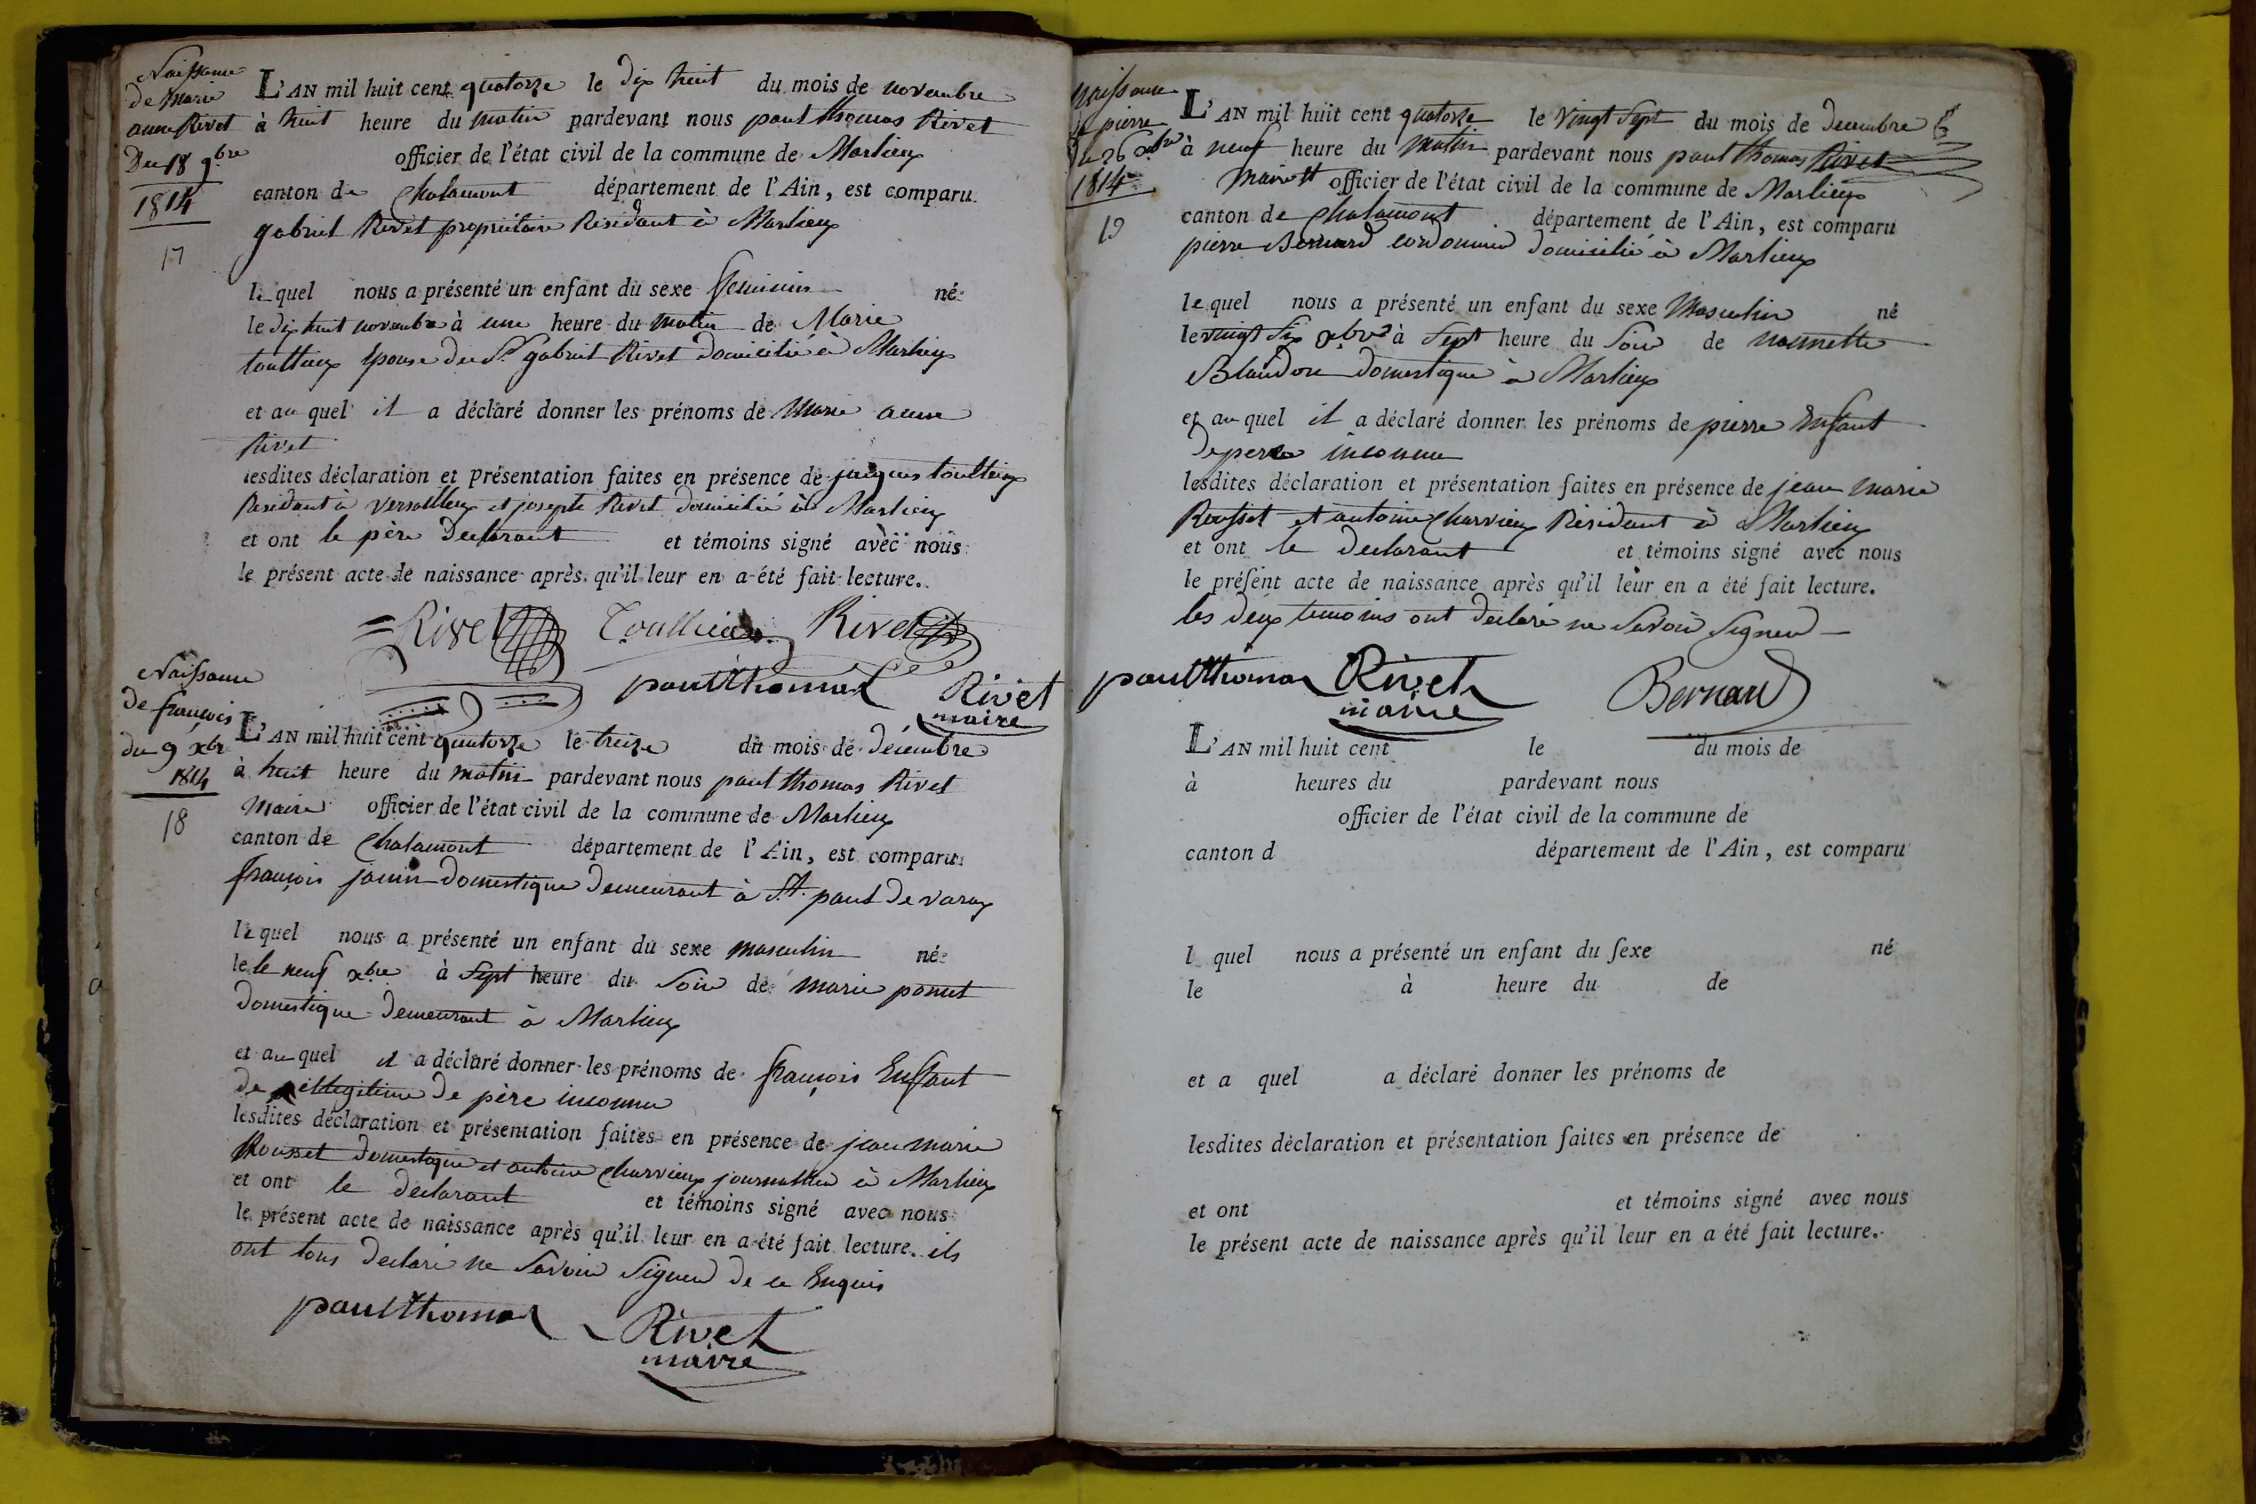 Naissance
de Marie
anne Rivet
Du 18 9.bre
1814
17
L'AN mil huit cent quatorze le dix huit du mois de novembre
à huit heure du matin pardevant nous paul thomas Rivet
officier de l'état civil de la commune de Marlieux
canton de Chalamont département de l'Ain, est comparu
gabriel Rivet propriétaire Résidant à Marlieux
lequel nous a présenté un enfant du sexe feminin né
le dix huit novembre à une heure du matin de Marie
toullieux épouse du Sr gabriel Rivet domicilié à Marlieux
et au quel il a déclaré donner les prénoms de Marie anne
Rivet
lesdites déclaration et présentation faites en présence de jacques toullieux
Résidant à versallieux et joseph Rivet domicilié à Marlieux
et ont le père déclarant et témoins signé avec nous
le présent acte de naissance après qu'il leur en a été fait lecture.
Rivet Toullieux Rivet
paul thomas Rivet
maire
Naissance
de françois
du 9 xbre
1814
18
L'AN mil huit cent quatorze le treize du mois de décembre
à huit heure du matin pardevant nous paul thomas Rivet
Maire officier de l'état civil de la commune de Marlieux
canton de Chalamont département de l'Ain, est comparu
françois janin domestique demeurant à St. paul de varax
lequel nous a présenté un enfant du sexe masculin né
le le neuf xbre à sept heure du soir de marie ponut
domestique demeurant à Marlieux
et au quel il a déclaré donner les prénoms de françois Enfant
de illegitime de père inconnu
lesdites déclaration et présentation faites en présence de jean marie
Rousset domestique et antoine Charvieux journallier à Marlieux
et ont le déclarant et témoins signé avec nous
le présent acte de naissance après qu'il leur en a été fait lecture. ils
ont tous déclaré ne savoir signer de ce Enquis
paul thomas Rivet
maire
Naissance
de pierre
du 26 xbre
1814
19
L'AN mil huit cent quatorze le vingt sept du mois de decembre
à neuf heure du matin pardevant nous paul thomas Rivet
maire officier de l'état civil de la commune de Marlieux
canton de Chalamont département de l'Ain, est comparu
pierre Bernard cordonnier domicilié à Marlieux
lequel nous a présenté un enfant du sexe Masculin né
le vingt six xbre à sept heure du soir de nannette
Blandon domestique à Marlieux
et au quel il a déclaré donner les prénoms de pierre enfant
de pere inconnu
lesdites déclaration et présentation faites en présence de jean marie
Rousset et antoine Charvieux Résidant à Marlieux
et ont le déclarant et témoins signé avec nous
le présent acte de naissance après qu'il leur en a été fait lecture.
les deux temoins ont déclaré ne savoir signer
paul thomas Rivet Bernard
maire
L'AN mil huit cent le du mois de
à heures du pardevant nous
officier de l'état civil de la commune de
canton d département de l'Ain, est comparu
l quel nous a présenté un enfant du sexe né
le à heure du de
et a quel a déclaré donner les prénoms de
lesdites déclaration et présentation faites en présence de
et ont et témoins signé avec nous
le présent acte de naissance après qu'il leur en a été fait lecture.